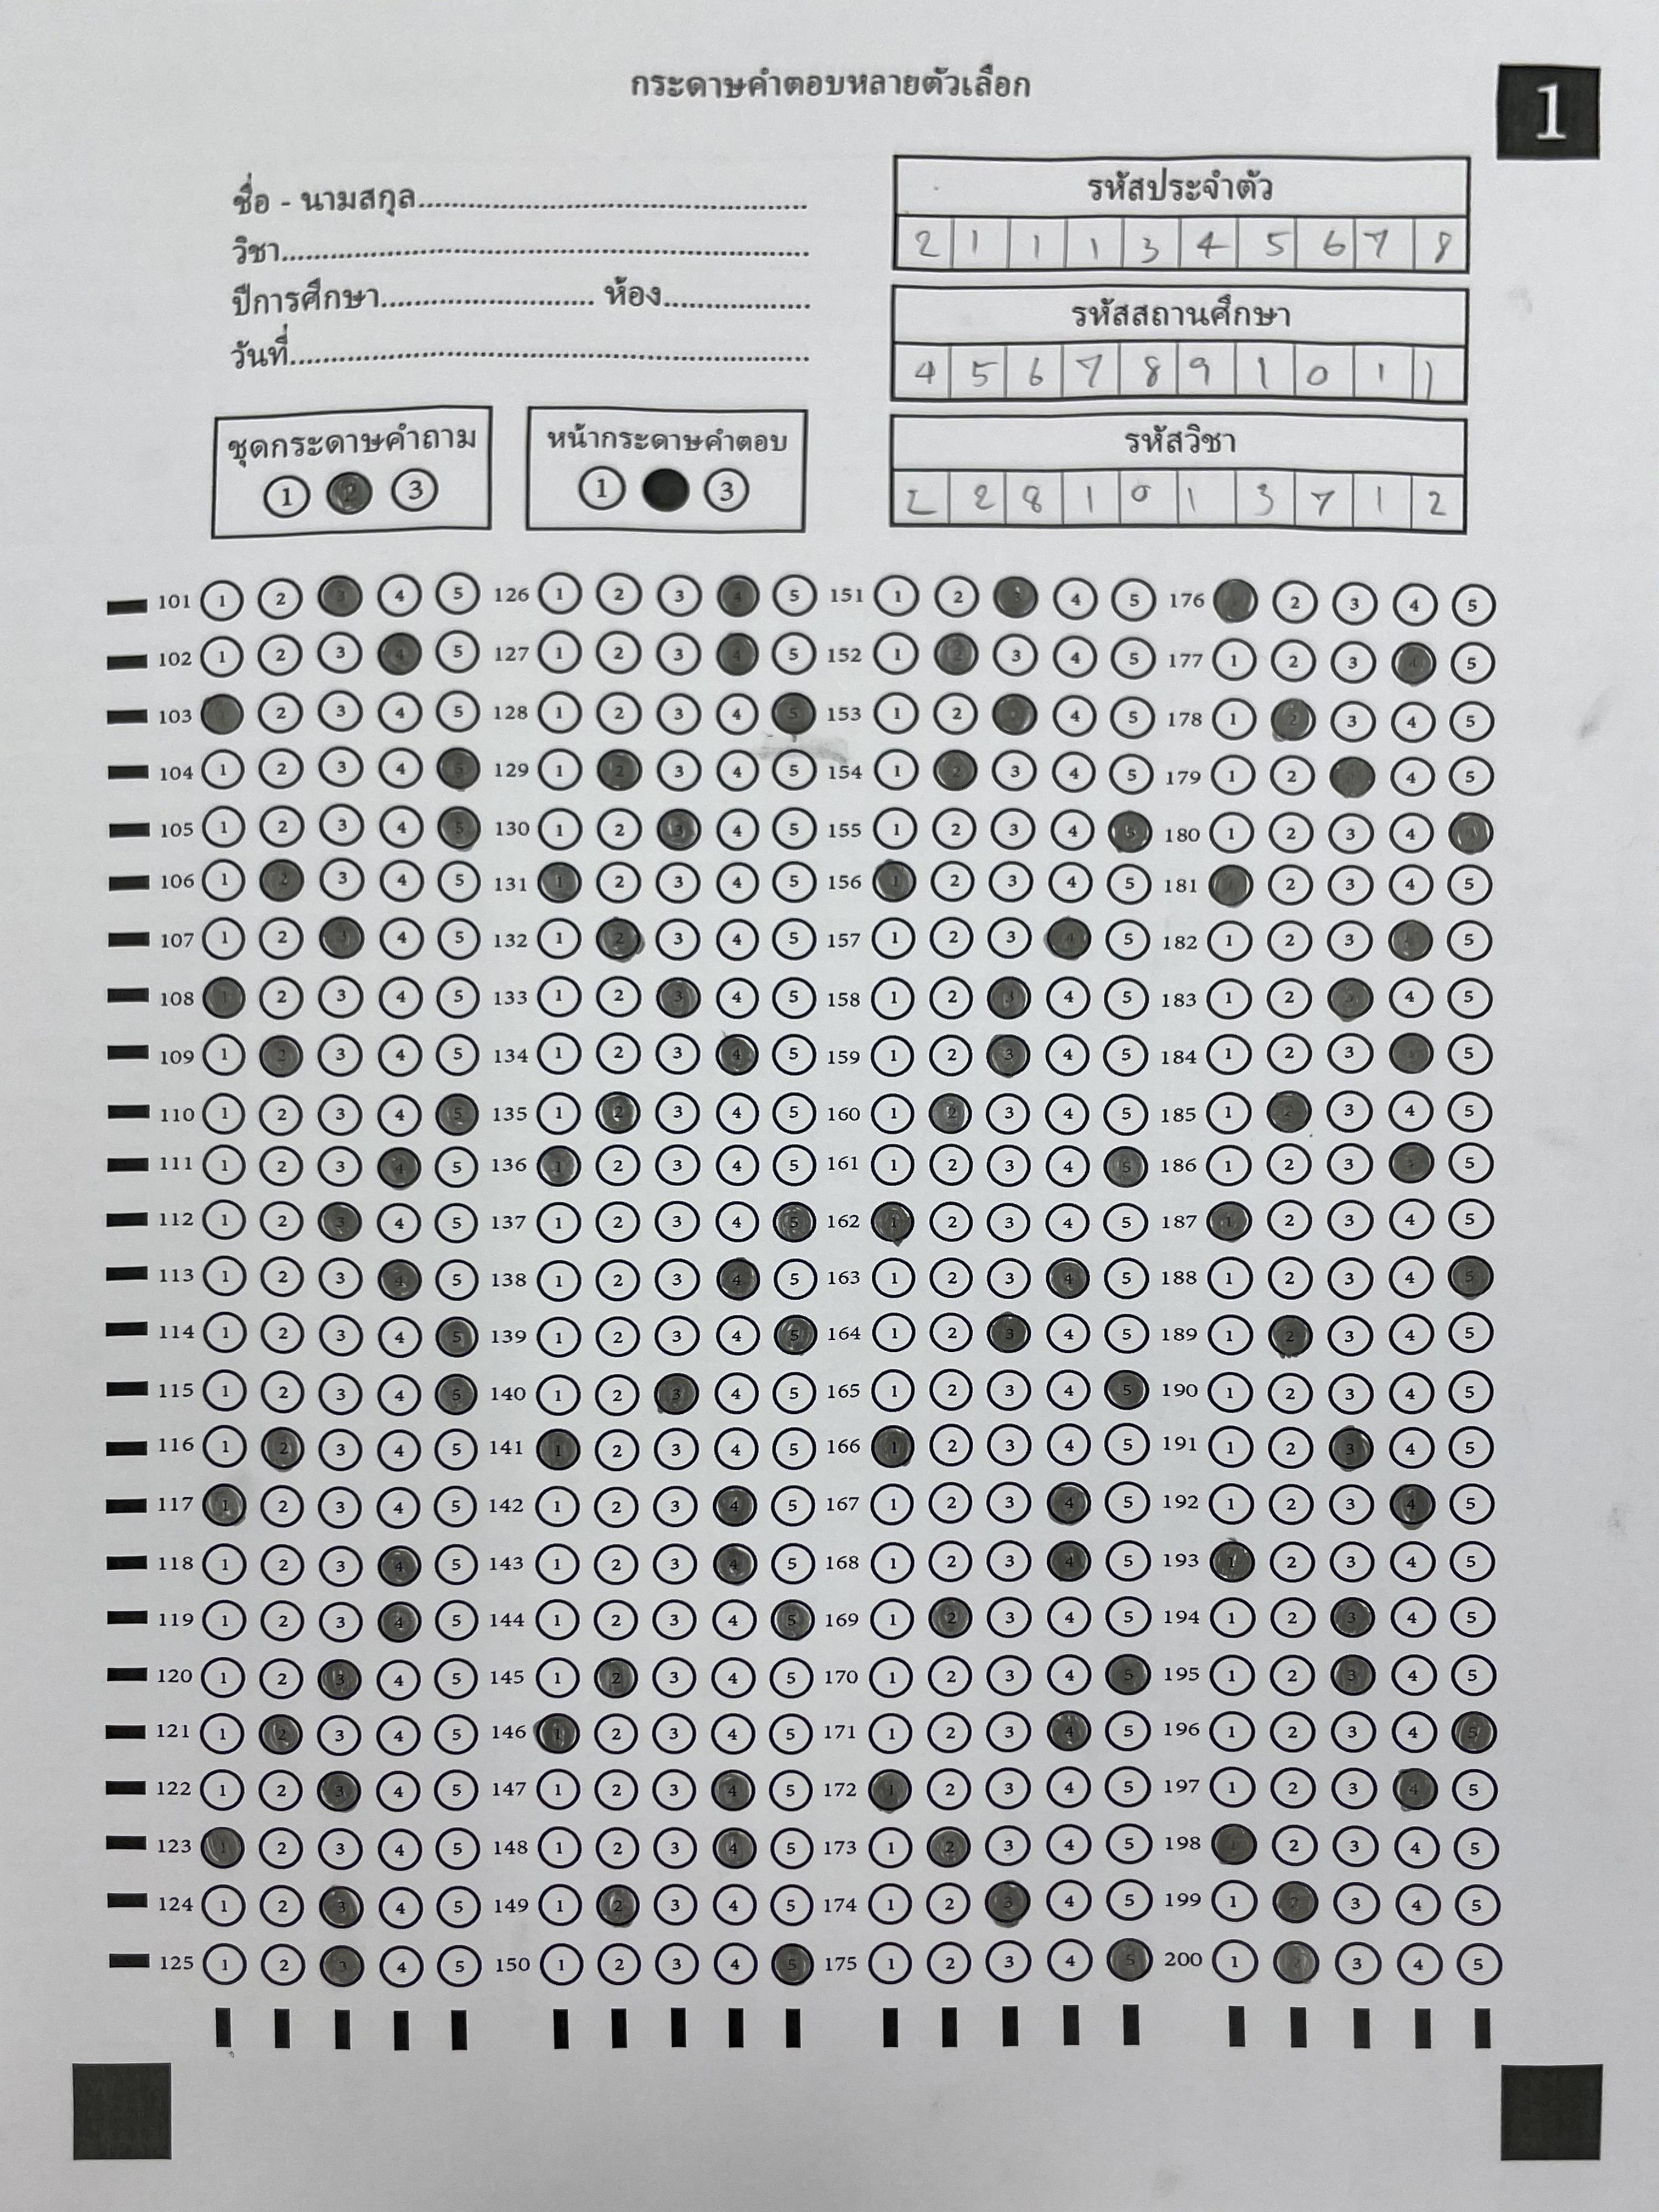 กระดาษคำตอบหลายตัวเลือก
1
ชื่อ - นามสกุล
วิชา
ปีการศึกษา ห้อง
วันที่
รหัสประจำตัว
2 1 1 1 3 4 5 6 7 8
รหัสสถานศึกษา
4 5 6 7 8 9 1 0 1 1
รหัสวิชา
2 2 8 1 0 1 3 7 1 2
ชุดกระดาษคำถาม
1 2 3
หน้ากระดาษคำตอบ
1 3
101 1 2 3 4 5 126 1 2 3 4 5 151 1 2 3 4 5 176 2 3 4 5
102 1 2 3 4 5 127 1 2 3 4 5 152 1 2 3 4 5 177 1 2 3 4 5
103 2 3 4 5 128 1 2 3 4 5 153 1 2 3 4 5 178 1 2 3 4 5
104 1 2 3 4 5 129 1 2 3 4 5 154 1 2 3 4 5 179 1 2 3 4 5
105 1 2 3 4 5 130 1 2 3 4 5 155 1 2 3 4 5 180 1 2 3 4 5
106 1 2 3 4 5 131 1 2 3 4 5 156 1 2 3 4 5 181 1 2 3 4 5
107 1 2 3 4 5 132 1 2 3 4 5 157 1 2 3 4 5 182 1 2 3 4 5
108 1 2 3 4 5 133 1 2 3 4 5 158 1 2 3 4 5 183 1 2 3 4 5
109 1 2 3 4 5 134 1 2 3 4 5 159 1 2 3 4 5 184 1 2 3 4 5
110 1 2 3 4 5 135 1 2 3 4 5 160 1 2 3 4 5 185 1 2 3 4 5
111 1 2 3 4 5 136 1 2 3 4 5 161 1 2 3 4 5 186 1 2 3 4 5
112 1 2 3 4 5 137 1 2 3 4 5 162 1 2 3 4 5 187 1 2 3 4 5
113 1 2 3 4 5 138 1 2 3 4 5 163 1 2 3 4 5 188 1 2 3 4 5
114 1 2 3 4 5 139 1 2 3 4 5 164 1 2 3 4 5 189 1 2 3 4 5
115 1 2 3 4 5 140 1 2 3 4 5 165 1 2 3 4 5 190 1 2 3 4 5
116 1 2 3 4 5 141 1 2 3 4 5 166 1 2 3 4 5 191 1 2 3 4 5
117 1 2 3 4 5 142 1 2 3 4 5 167 1 2 3 4 5 192 1 2 3 4 5
118 1 2 3 4 5 143 1 2 3 4 5 168 1 2 3 4 5 193 1 2 3 4 5
119 1 2 3 4 5 144 1 2 3 4 5 169 1 2 3 4 5 194 1 2 3 4 5
120 1 2 3 4 5 145 1 2 3 4 5 170 1 2 3 4 5 195 1 2 3 4 5
121 1 2 3 4 5 146 1 2 3 4 5 171 1 2 3 4 5 196 1 2 3 4 5
122 1 2 3 4 5 147 1 2 3 4 5 172 1 2 3 4 5 197 1 2 3 4 5
123 1 2 3 4 5 148 1 2 3 4 5 173 1 2 3 4 5 198 1 2 3 4 5
124 1 2 3 4 5 149 1 2 3 4 5 174 1 2 3 4 5 199 1 2 3 4 5
125 1 2 3 4 5 150 1 2 3 4 5 175 1 2 3 4 5 200 1 2 3 4 5